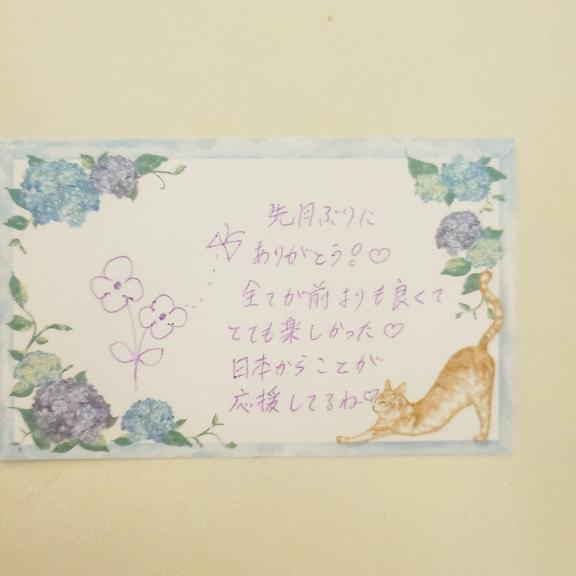 先月ぶりに
ありがとう!♡
全てが前よりも良くて
とても楽しかった♡
日本からことが
応援してるね♡